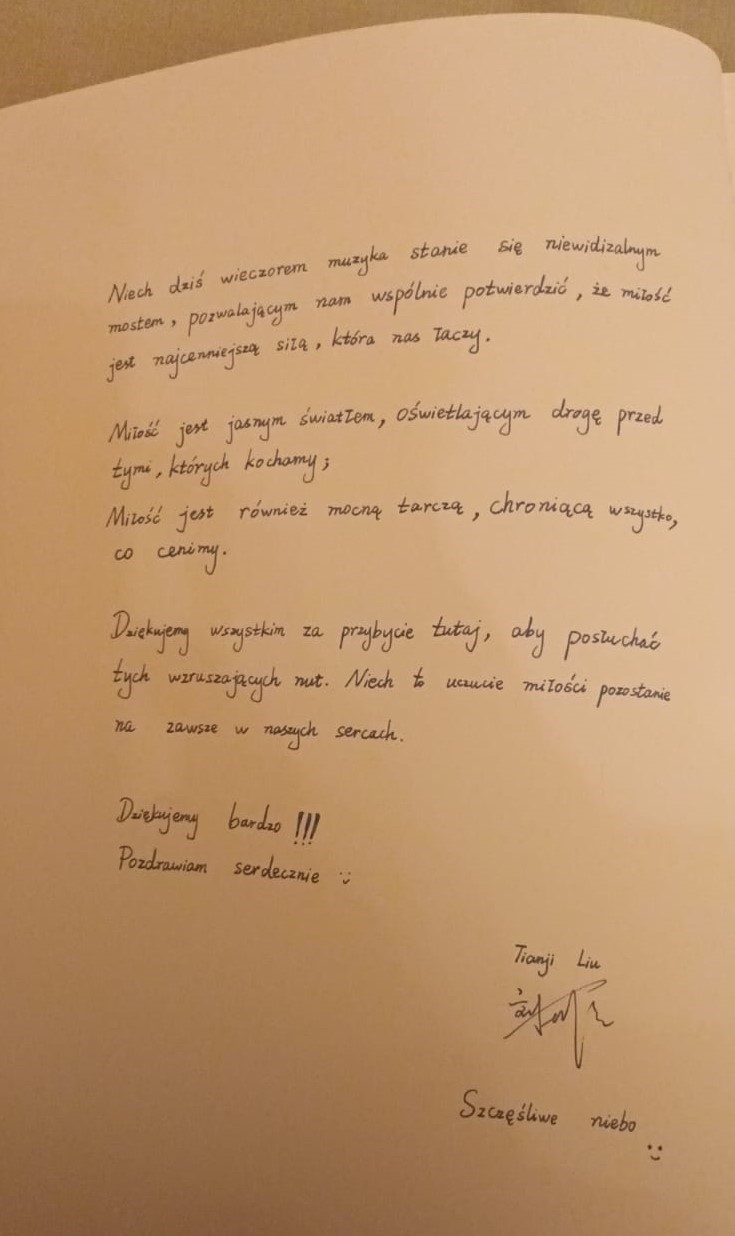 Niech dziś wieczorem muzyka stanie się niewidizalnym
mostem, pozwalającym nam wspólnie potwierdzić, że miłość
jest najcenniejszą siłą, która nas łaczy.
Miłość jest jasnym światłem, oświetlającym drogę przed
tymi, których kochamy;
Miłość jest również mocną tarczą, chroniącą wszystko,
co cenimy.
Dziękujemy wszystkim za przybycie tutaj, aby posłuchać
tych wzruszających nut. Niech to uczucie miłości pozostanie
na zawsze w naszych sercach.
Dziękujemy bardzo !!!
Pozdrawiam serdecznie :)
Tianji Liu
Szczęśliwe niebo
:)